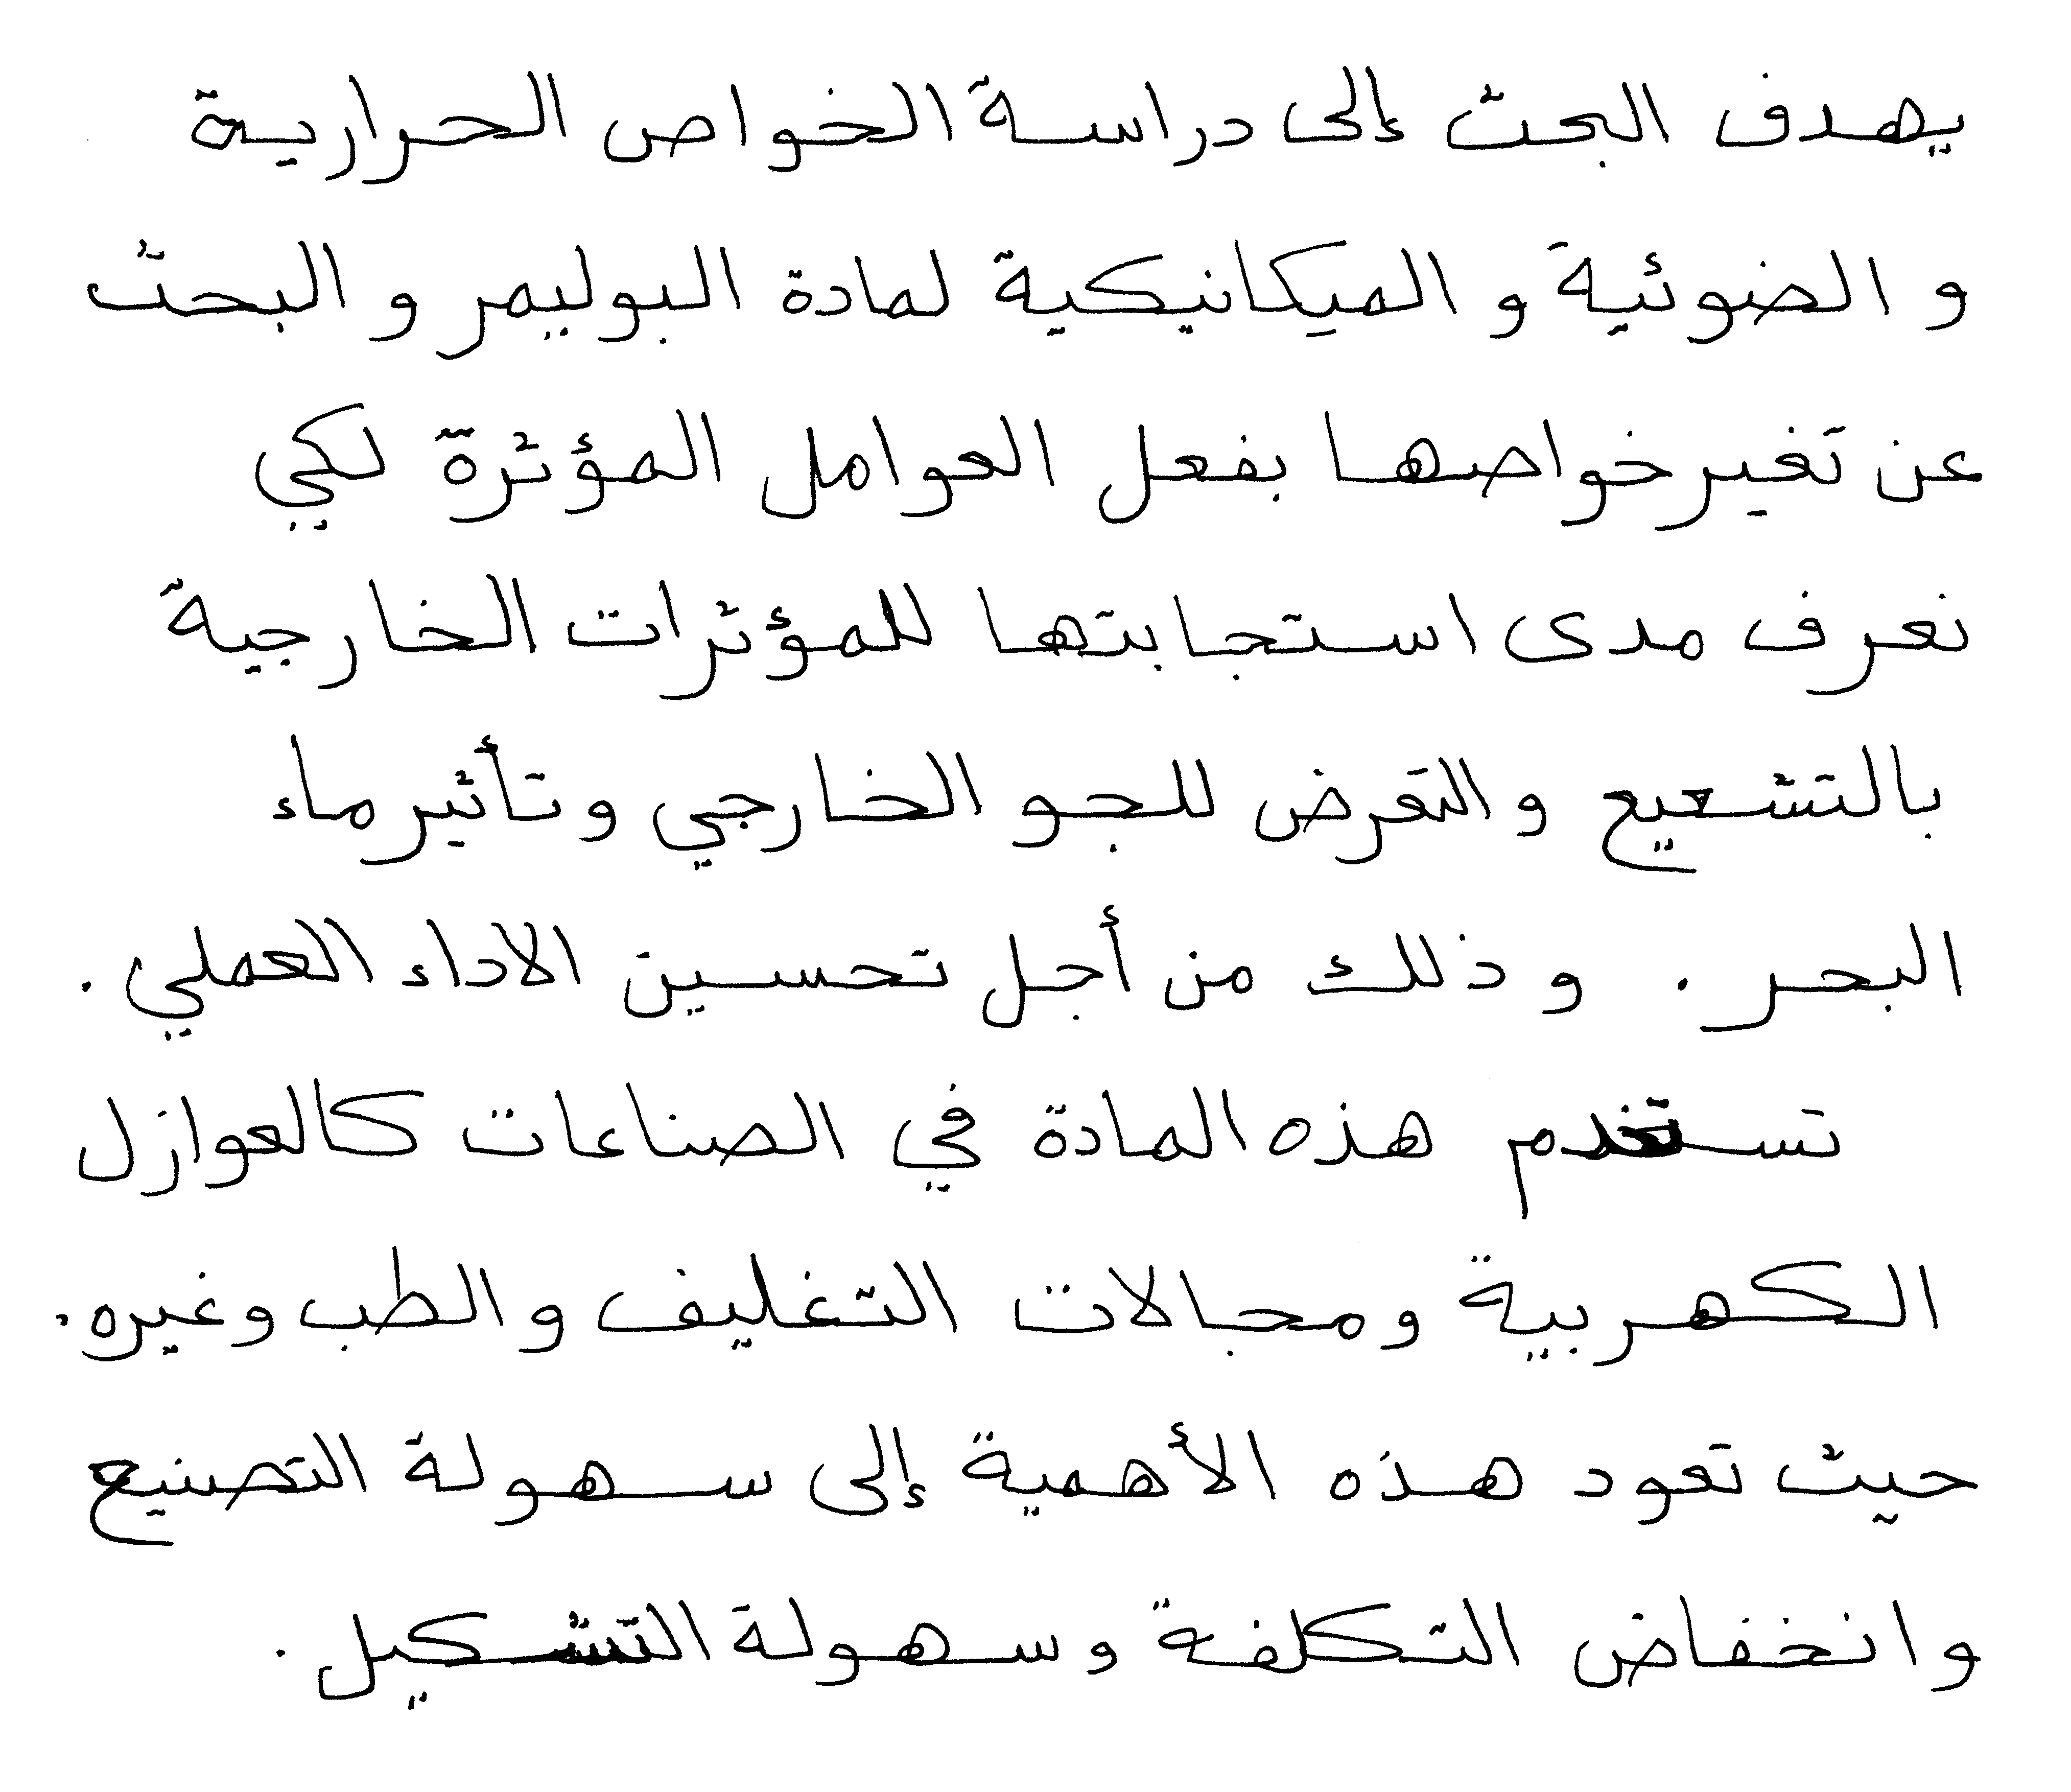 يهدف البحث إلى دراسة الخواص الحرارية
و الضوئية و الميكانيكية لمادة البوليمر و البحث
عن تغير خواصها بفعل العوامل المؤثرة لكي
نعرف مدى استجابتها للمؤثرات الخارجية
بالتشعيع و التعرض للجو الخارجي وتأثير ماء
البحر . و ذلك من أجل تحسين الاداء العملي .
تستخدم هذه المادة في الصناعات كالعوازل
الكهربية ومجالات التغليف والطب وغيره .
حيث تعود هذه الأهمية إلى سهولة التصنيع
وانخفاض التكلفة وسهولة التشكيل .